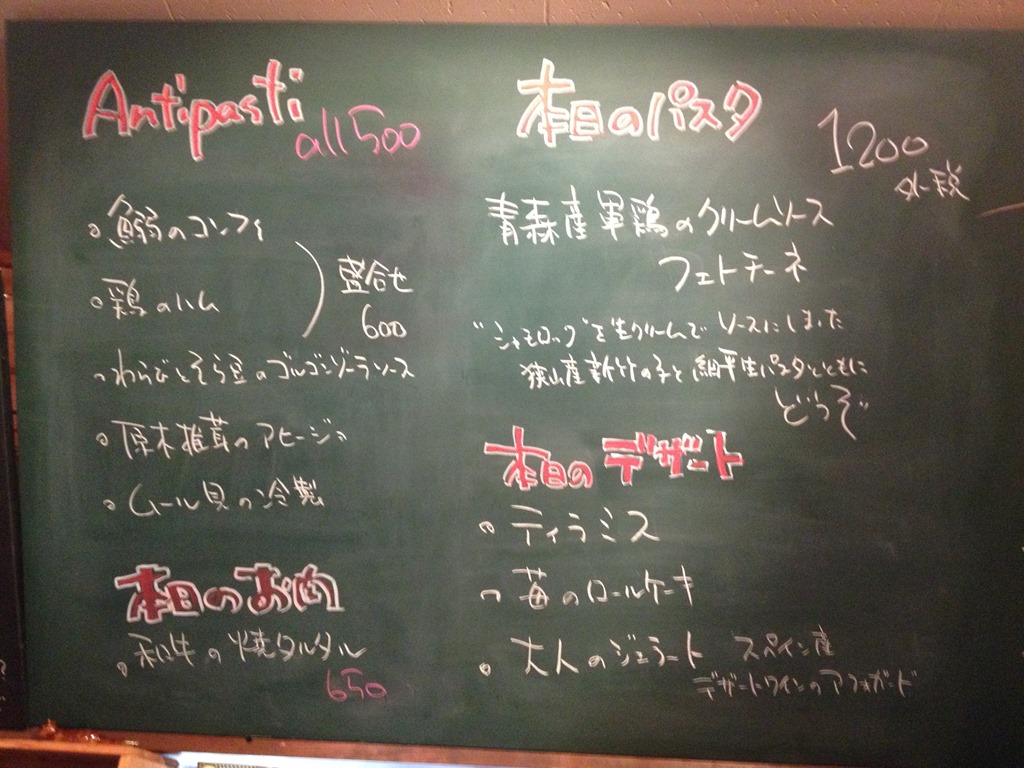 Antipasti
all 500
・鰯のコンフィ
・鶏のハム
盛合せ
600
・わらびとそら豆のゴルゴンゾーラソース
・原木椎茸のアヒージョ
・ムール貝の冷製
本日のお肉
・和牛の焼タルタル
650
本日のパスタ
1200
外税
青森産軍鶏のクリームソース
フェトチーネ
"シャモロック"を生クリームでソースにしました
狭山産新竹の子と細平生パスタとともに
どうぞ
本日のデザート
・ティラミス
・苺のロールケーキ
・大人のジェラート スペイン産
デザートワインのアフォガード